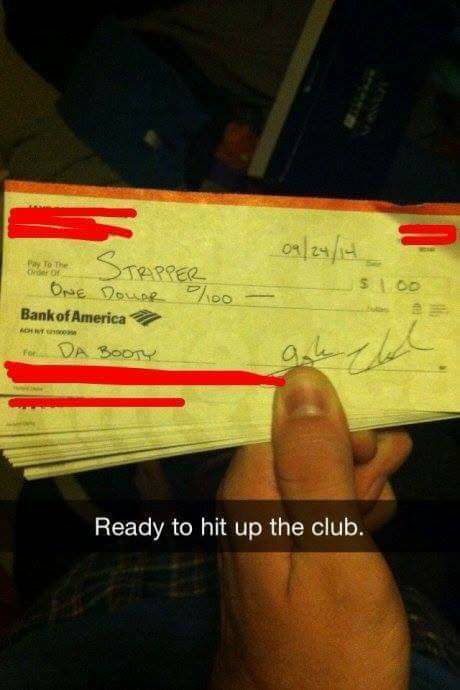 09/24/14
Pay To The
Order Of
STRAPPER
$ 1.00
ONE DOLLAR 0/100
Bank of America
For
DA BOOTY
Ready to hit up the club.